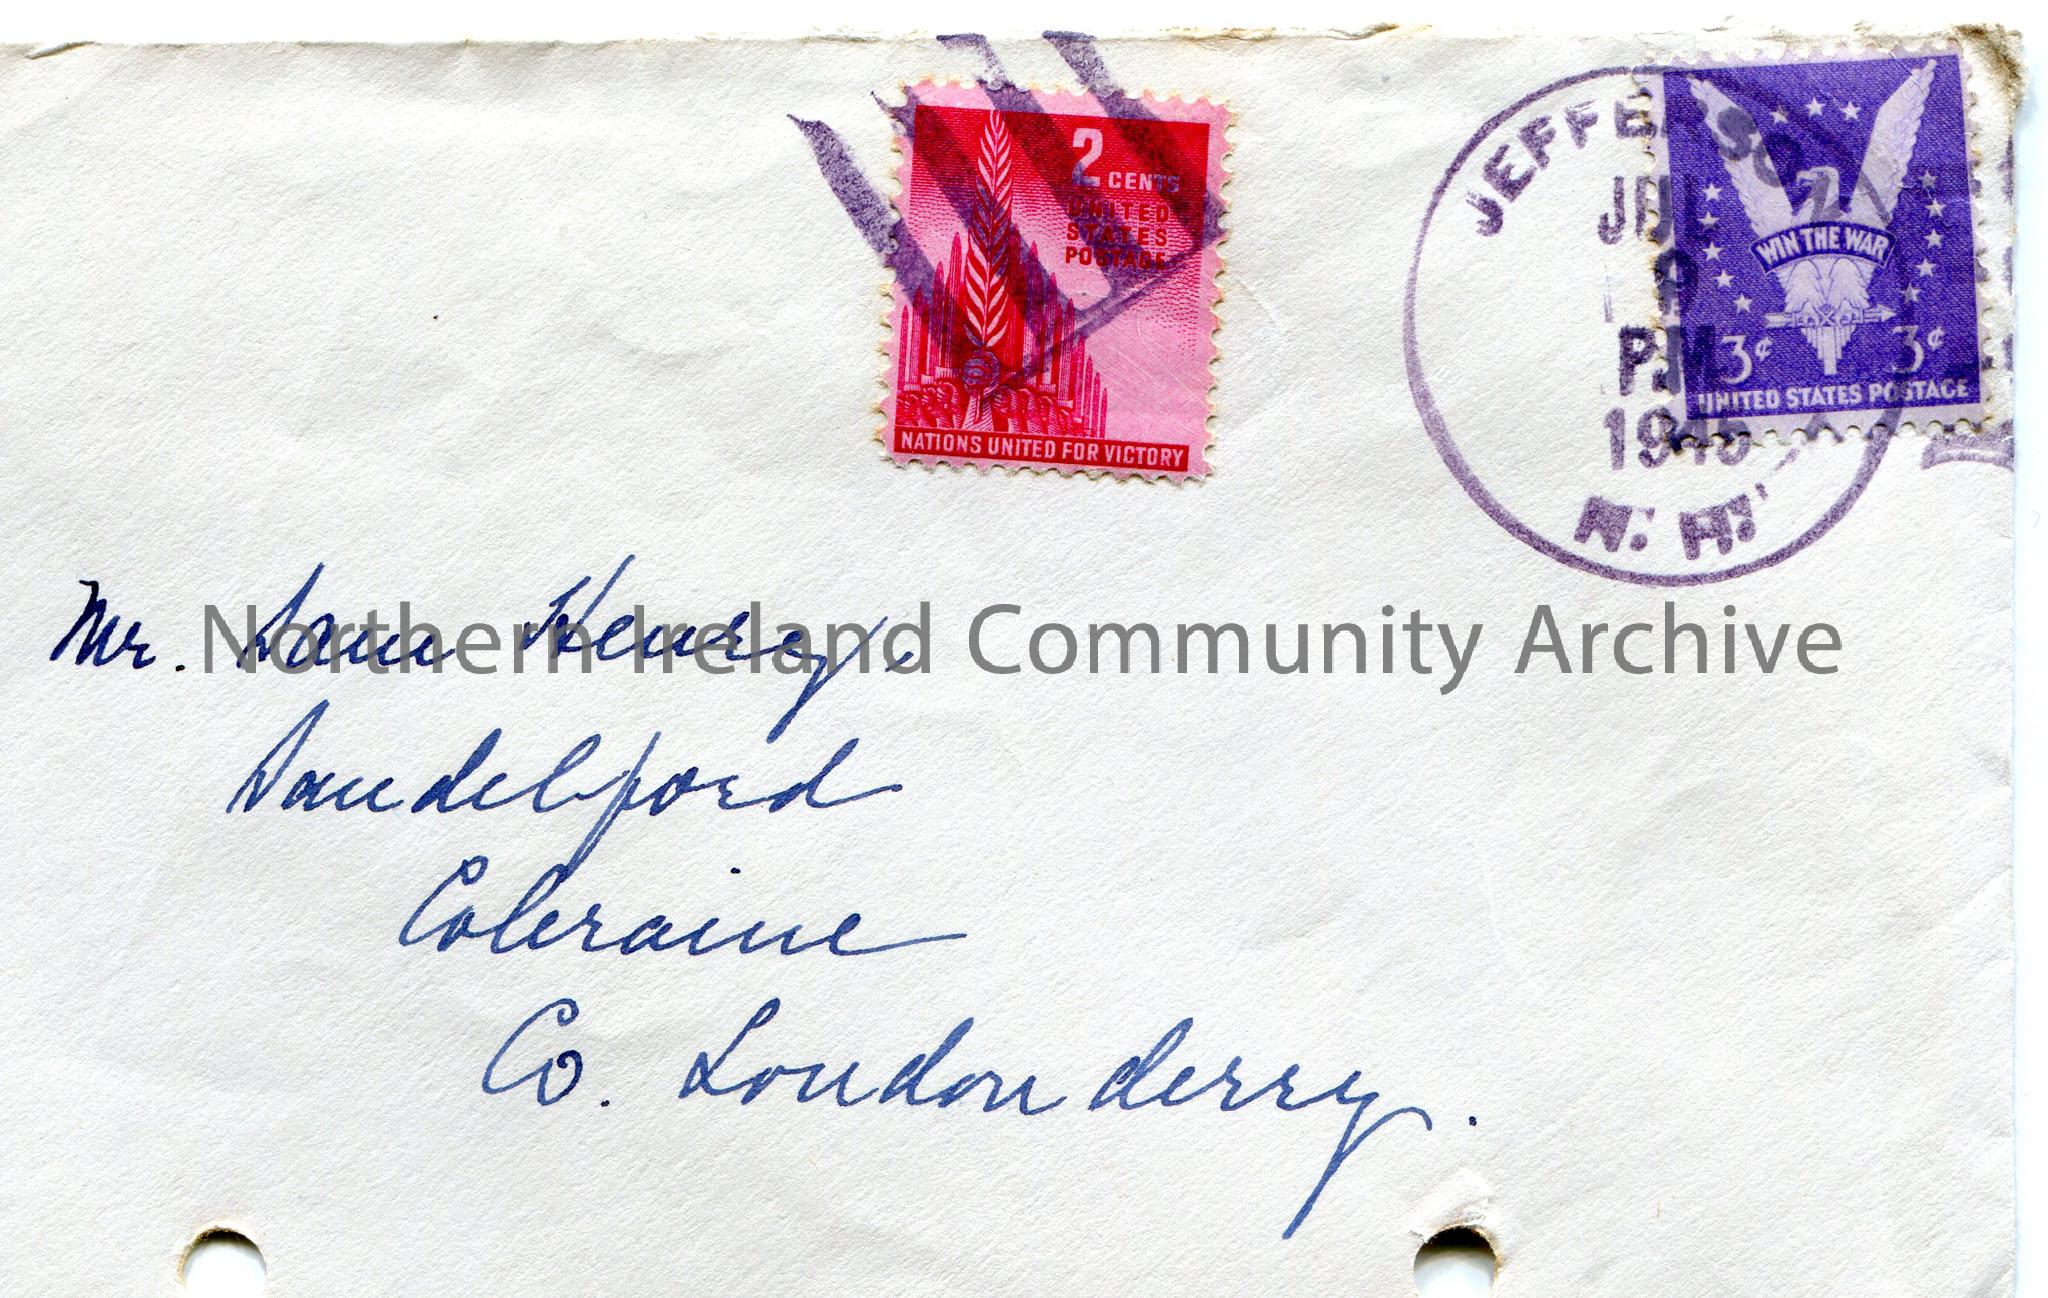 2 CENTS
UNITED
STATES
POSTAGE
NATIONS UNITED FOR VICTORY
JEFFERSON
PM
1945
N. H.
WIN THE WAR
3¢ 3¢
UNITED STATES POSTAGE
Mr. Sam Henry,
Sandelford
Coleraine
Co. Londonderry.
Northern Ireland Community Archive